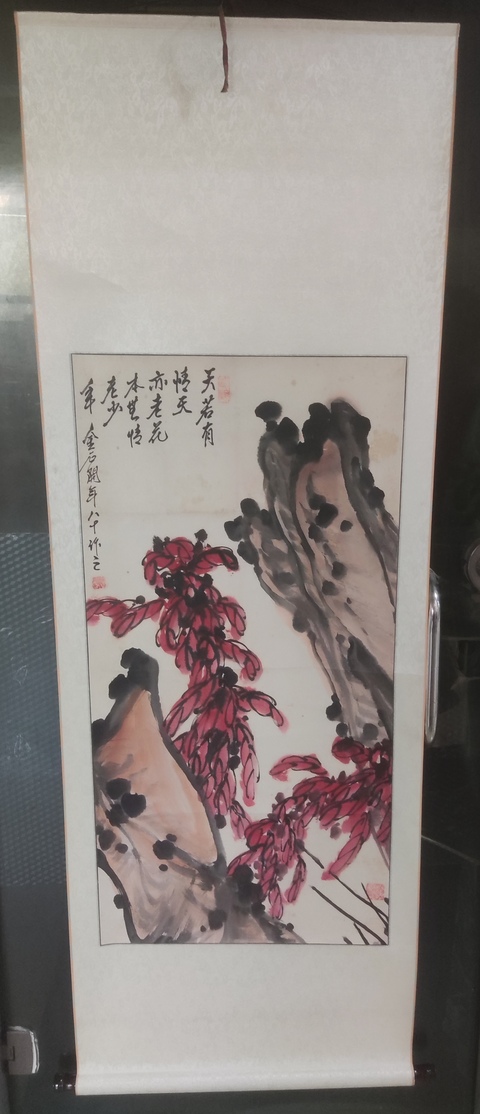 天若有
情天
亦老花
本無情
老少
年 金石開年八十作之